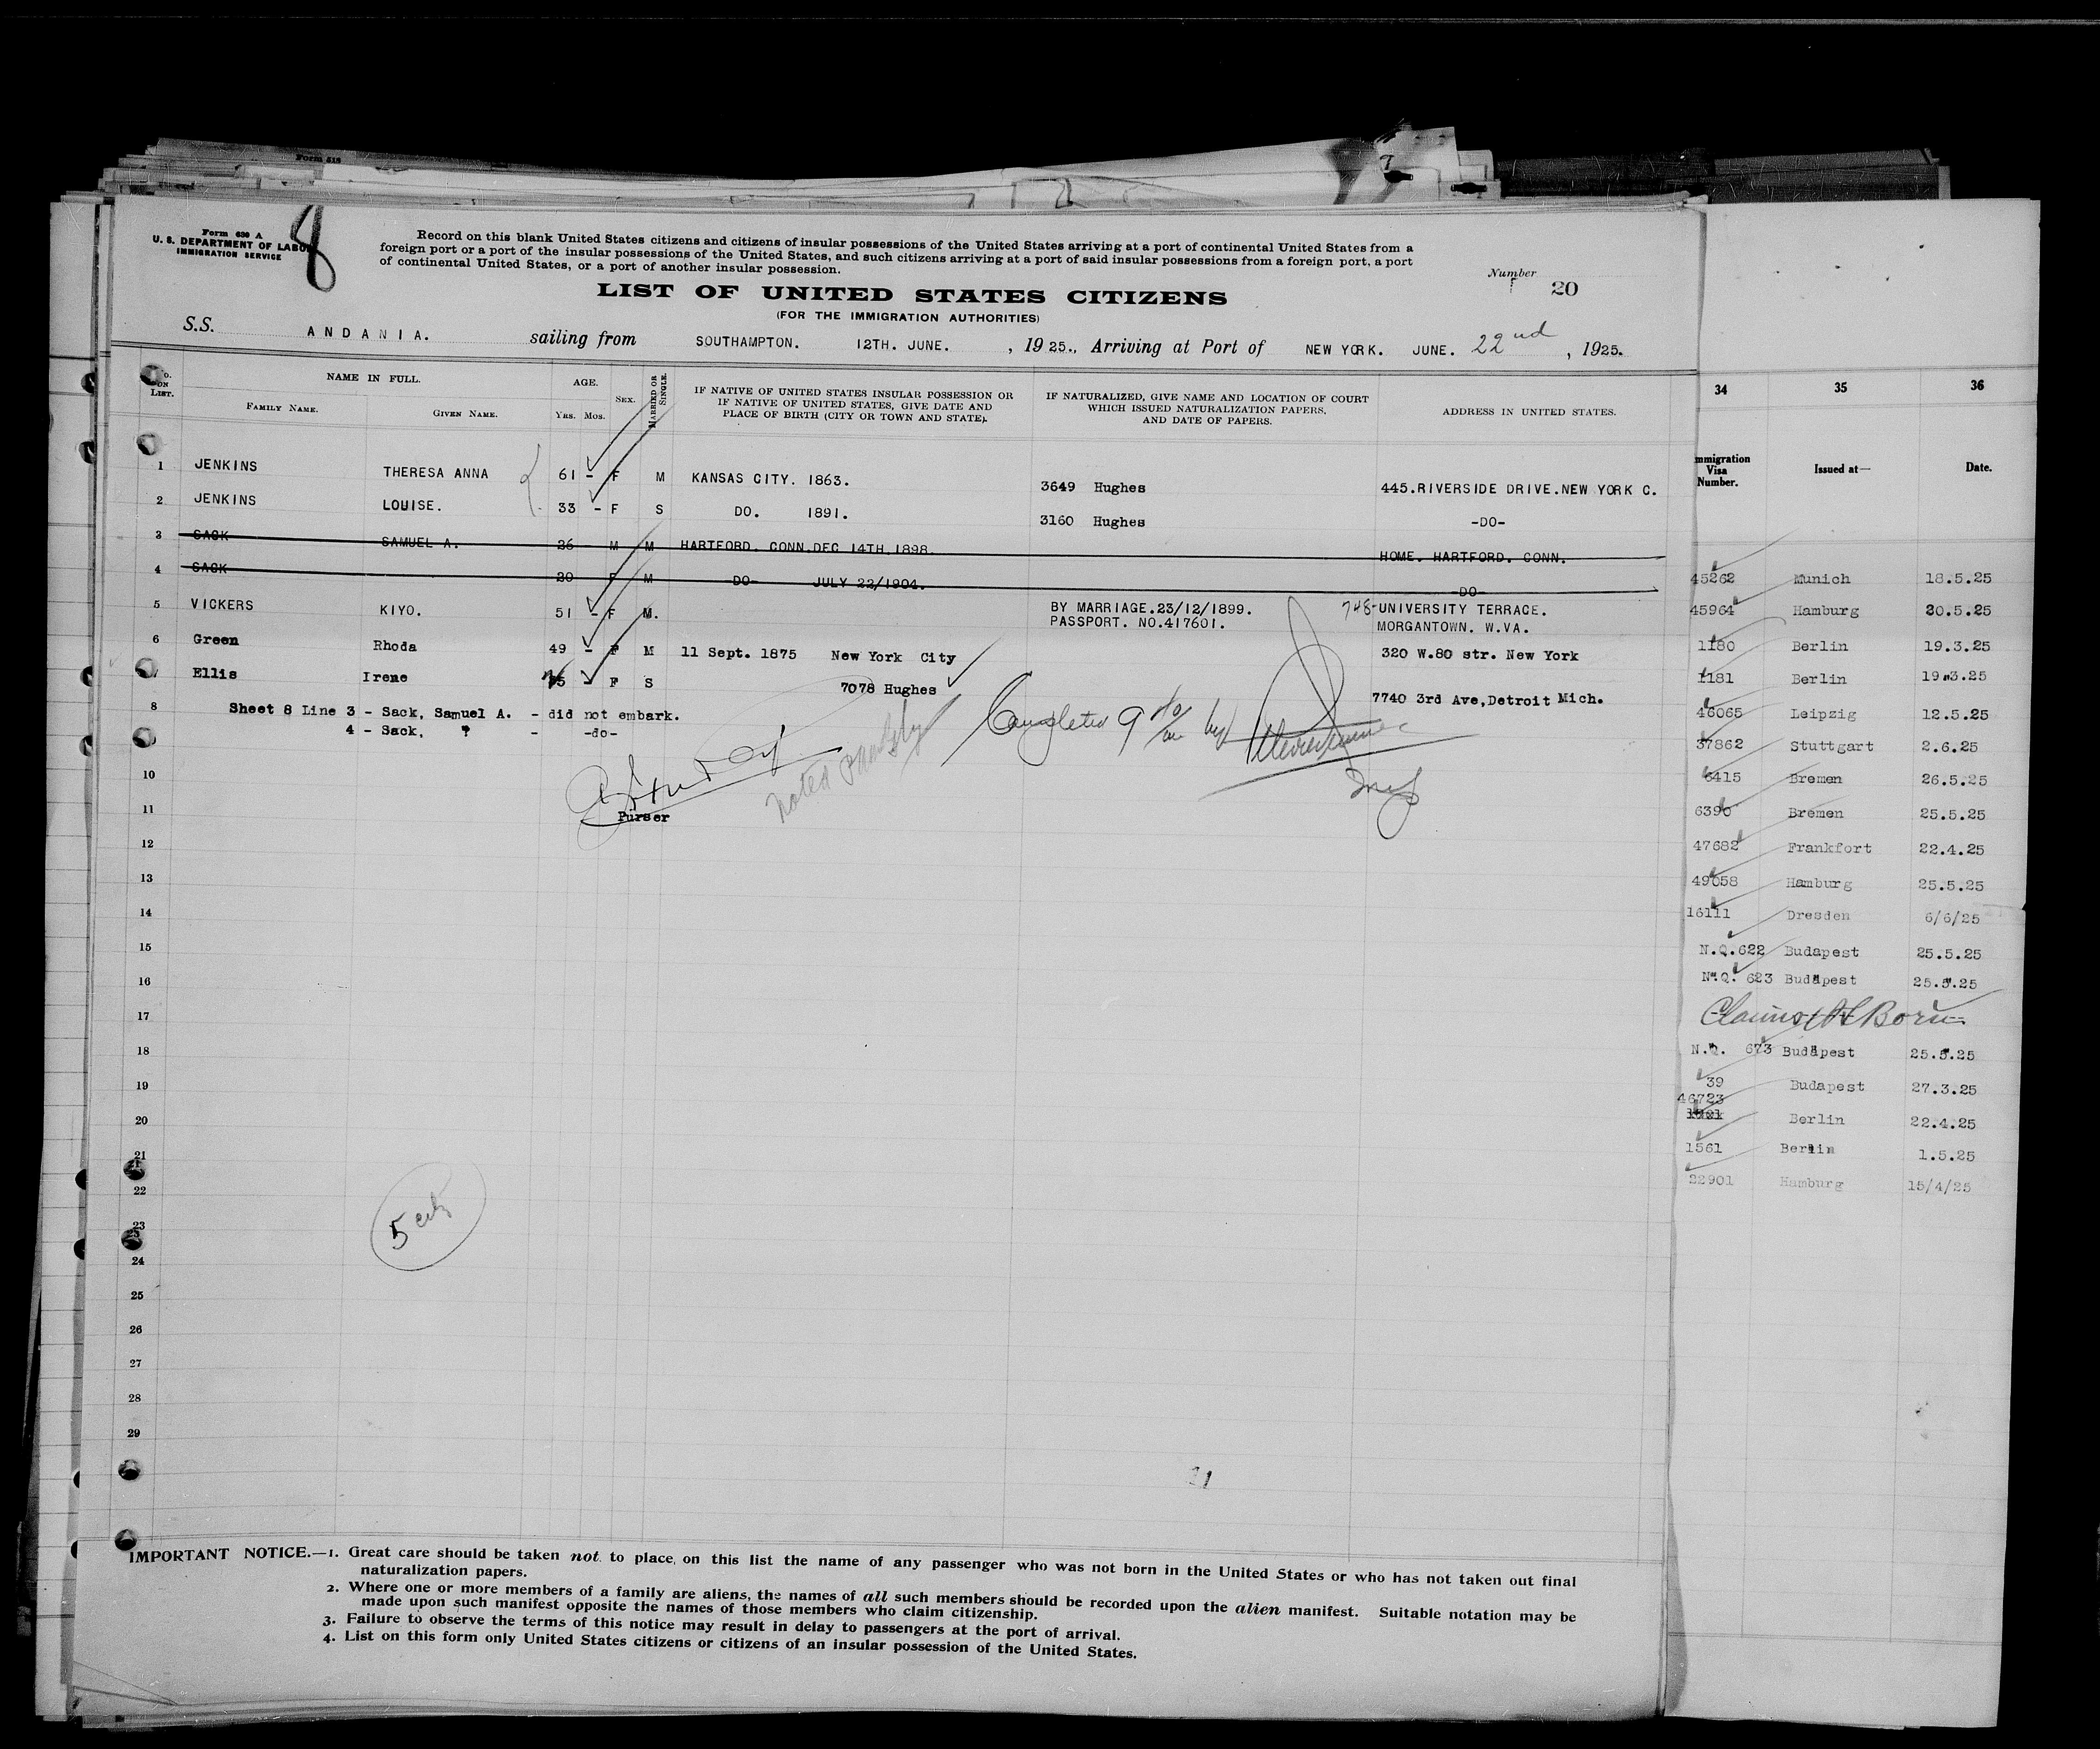 Form 518
7
Form 630 A
U. S. DEPARTMENT OF LABOR
IMMIGRATION SERVICE
8
Record on this blank United States citizens and citizens of insular possessions of the United States arriving at a port of continental United States from a
foreign port or a port of the insular possessions of the United States, and such citizens arriving at a port of said insular possessions from a foreign port, a port
of continental United States, or a port of another insular possession.
Number 20
LIST OF UNITED STATES CITIZENS
(FOR THE IMMIGRATION AUTHORITIES)
S.S. ANDANIA. sailing from SOUTHAMPTON. 12TH. JUNE. , 1925., Arriving at Port of NEW YORK. JUNE. 22nd , 1925.
No. ON LIST. NAME IN FULL. FAMILY NAME. GIVEN NAME. AGE. YRS. MOS. SEX. MARRIED OR SINGLE.
IF NATIVE OF UNITED STATES INSULAR POSSESSION OR
IF NATIVE OF UNITED STATES, GIVE DATE AND
PLACE OF BIRTH (CITY OR TOWN AND STATE).
IF NATURALIZED, GIVE NAME AND LOCATION OF COURT
WHICH ISSUED NATURALIZATION PAPERS,
AND DATE OF PAPERS.
ADDRESS IN UNITED STATES.
1 JENKINS THERESA ANNA 61 - F M KANSAS CITY. 1863. 3649 Hughes 445.RIVERSIDE DRIVE.NEW YORK C.
2 JENKINS LOUISE. 33 - F S DO. 1891. 3160 Hughes -DO-
3 SACK SAMUEL A. 26 M M HARTFORD. CONN.DEC 14TH.1898. HOME. HARTFORD. CONN.
4 SACK 20 F M -DO- JULY 22/1904. -DO-
5 VICKERS KIYO. 51 - F M. BY MARRIAGE.23/12/1899. 748-UNIVERSITY TERRACE.
PASSPORT. NO.417601. MORGANTOWN. W.VA.
6 Green Rhoda 49 - F M 11 Sept. 1875 New York City 320 W.80 str. New York
7 Ellis Irene F S 7078 Hughes 7740 3rd Ave,Detroit Mich.
8 Sheet 8 Line 3 - Sack, Samuel A. - did not embark.
4 - Sack, ? - -do-
9
Completed 9 by
Noted
Insp
10
11 Purser
12
13
14
15
16
17
18
19
20
21
21
22
23
24
25
26
27
28
29
5 citz
11
IMPORTANT NOTICE.—1. Great care should be taken not to place, on this list the name of any passenger who was not born in the United States or who has not taken out final
naturalization papers.
2. Where one or more members of a family are aliens, the names of all such members should be recorded upon the alien manifest. Suitable notation may be
made upon such manifest opposite the names of those members who claim citizenship.
3. Failure to observe the terms of this notice may result in delay to passengers at the port of arrival.
4. List on this form only United States citizens or citizens of an insular possession of the United States.
34 35 36
Immigration Visa Number. Issued at— Date.
45262 Munich 18.5.25
45964 Hamburg 20.5.25
1180 Berlin 19.3.25
1181 Berlin 19.3.25
46065 Leipzig 12.5.25
37862 Stuttgart 2.6.25
6415 Bremen 26.5.25
6390 Bremen 25.5.25
47682 Frankfort 22.4.25
49058 Hamburg 25.5.25
16111 Dresden 6/6/25
N.Q.622 Budapest 25.5.25
N.Q. 623 Budapest 25.5.25
Claims Born
N.Q. 673 Budapest 25.5.25
39 Budapest 27.3.25
46723
Berlin 22.4.25
1561 Berlin 1.5.25
22901 Hamburg 15/4/25